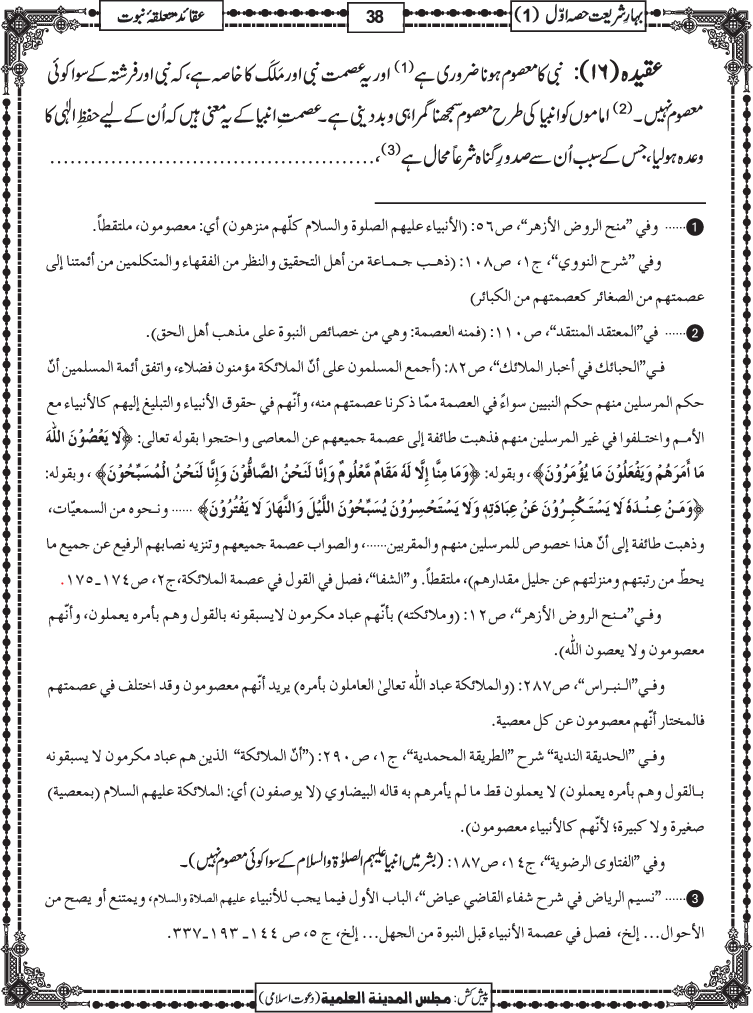 بہارِشریعت حصہ اوّل (1)
38
عقائد متعلقۂ نبوت
عقیدہ (۱۶): نبی کا معصوم ہونا ضروری ہے (1) اور یہ عصمت نبی اور مَلَک کا خاصہ ہے، کہ نبی اور فرشتہ کے سوا کوئی
معصوم نہیں۔ (2) اماموں کو انبیا کی طرح معصوم سمجھنا گمراہی و بددینی ہے۔ عصمتِ انبیا کے یہ معنی ہیں کہ اُن کے لیے حفظِ الٰہی کا
وعدہ ہولیا، جس کے سبب اُن سے صدورِ گناہ شرعاً محال ہے (3)، ................................................
1 ...... وفي ”منح الروض الأزهر“، ص٥٦: (الأنبياء عليهم الصلوة والسلام كلّهم منزهون) أي: معصومون، ملتقطاً.
وفي ”شرح النووي“، ج١، ص١٠٨: (ذهب جماعة من أهل التحقيق والنظر من الفقهاء والمتكلمين من أئمتنا إلى
عصمتهم من الصغائر كعصمتهم من الكبائر)
2 ...... في”المعتقد المنتقد“، ص١١٠: (فمنه العصمة: وهي من خصائص النبوة على مذهب أهل الحق).
في”الحبائك في أخبار الملائك“، ص٨٢: (أجمع المسلمون على أنّ الملائكة مؤمنون فضلاء، واتفق أئمة المسلمين أنّ
حكم المرسلين منهم حكم النبيين سواءً في العصمة ممّا ذكرنا عصمتهم منه، وأنّهم في حقوق الأنبياء والتبليغ إليهم كالأنبياء مع
الأمم واختلفوا في غير المرسلين منهم فذهبت طائفة إلى عصمة جميعهم عن المعاصي واحتجوا بقوله تعالى: ﴿لَا يَعْصُوْنَ اللّٰهَ
مَا أَمَرَهُمْ وَيَفْعَلُوْنَ مَا يُؤْمَرُوْنَ﴾، وبقوله: ﴿وَمَا مِنَّا إِلَّا لَهُ مَقَامٌ مَّعْلُومٌ وَإِنَّا لَنَحْنُ الصَّافُّوْنَ وَإِنَّا لَنَحْنُ الْمُسَبِّحُوْنَ﴾، وبقوله:
﴿وَمَنْ عِنْدَهُ لَا يَسْتَكْبِرُوْنَ عَنْ عِبَادَتِهِ وَلَا يَسْتَحْسِرُوْنَ يُسَبِّحُوْنَ اللَّيْلَ وَالنَّهَارَ لَا يَفْتُرُوْنَ﴾ ...... ونحوه من السمعيّات،
وذهبت طائفة إلى أنّ هذا خصوص للمرسلين منهم والمقربين......، والصواب عصمة جميعهم وتنزيه نصابهم الرفيع عن جميع ما
يحطّ من رتبتهم ومنزلتهم عن جليل مقدارهم)، ملتقطاً. و”الشفا“، فصل في القول في عصمة الملائكة،ج٢، ص١٧٤ـ١٧٥.
وفي ”منح الروض الأزهر“، ص١٢: (وملائكته) بأنّهم عباد مكرمون لايسبقونه بالقول وهم بأمره يعملون، وأنّهم
معصومون ولا يعصون الله).
وفي”النبراس“، ص٢٨٧: (والملائكة عباد الله تعالىٰ العاملون بأمره) يريد أنّهم معصومون وقد اختلف في عصمتهم
فالمختار أنّهم معصومون عن كل معصية.
وفي ”الحديقة الندية“ شرح ”الطريقة المحمدية“، ج١، ص٢٩٠: (”أنّ الملائكة“ الذين هم عباد مكرمون لا يسبقونه
بالقول وهم بأمره يعملون) لا يعملون قط ما لم يأمرهم به قاله البيضاوي (لا يوصفون) أي: الملائكة عليهم السلام (بمعصية)
صغيرة ولا كبيرة؛ لأنّهم كالأنبياء معصومون).
وفي ”الفتاوى الرضوية“، ج١٤، ص١٨٧: (بشر میں انبیا علیہم الصلوٰۃ والسلام کے سوا کوئی معصوم نہیں)۔
3 ...... ”نسيم الرياض في شرح شفاء القاضي عياض“، الباب الأول فيما يجب للأنبياء عليهم الصلاة والسلام، ويمتنع أو يصح من
الأحوال... إلخ، فصل في عصمة الأنبياء قبل النبوة من الجهل... إلخ، ج ٥، ص ١٤٤ـ ١٩٣ـ٣٣٧.
پیش کش: مجلس المدینة العلمیة (دعوت اسلامی)